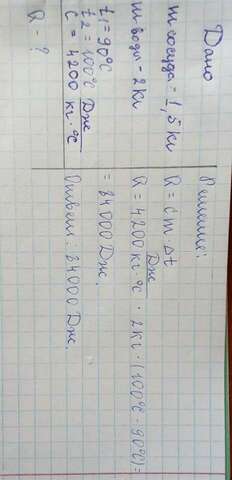 Дано
m сосуда = 1,5 кг
m воды = 2 кг
t₁ = 90°C
t₂ = 100°C
C = 4200 Дж/кг·°C
Q - ?
Решение:
Q = c m Δt
Q = 4200 Дж/кг·°C · 2кг · (100°C - 90°C) =
= 84000 Дж.
Ответ: 84000 Дж.